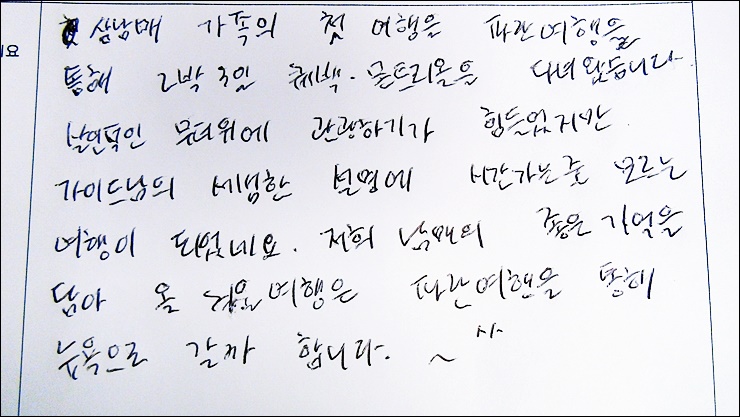 삼남매 가족의 첫 여행을 파란여행을
통해 2박 3일 퀘백·몬트리올을 다녀왔습니다.
살인적인 무더위에 관광하기가 힘들었지만
가이드님의 세심한 설명에 시간가는줄 모르는
여행이 되었네요. 저희 남매의 좋은 기억을
담아 올 겨울여행은 파란여행을 통해
뉴욕으로 갈까 합니다. ~